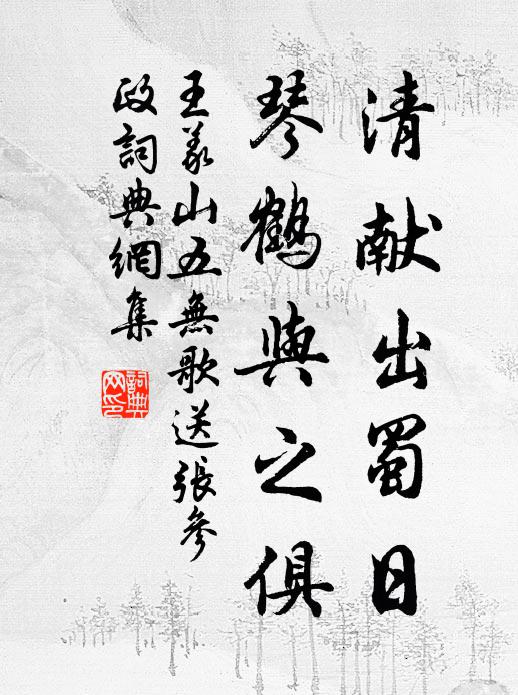 清献出蜀日
琴鶴與之俱
王義山五無歌送張參
政詞典網集
詞典網印